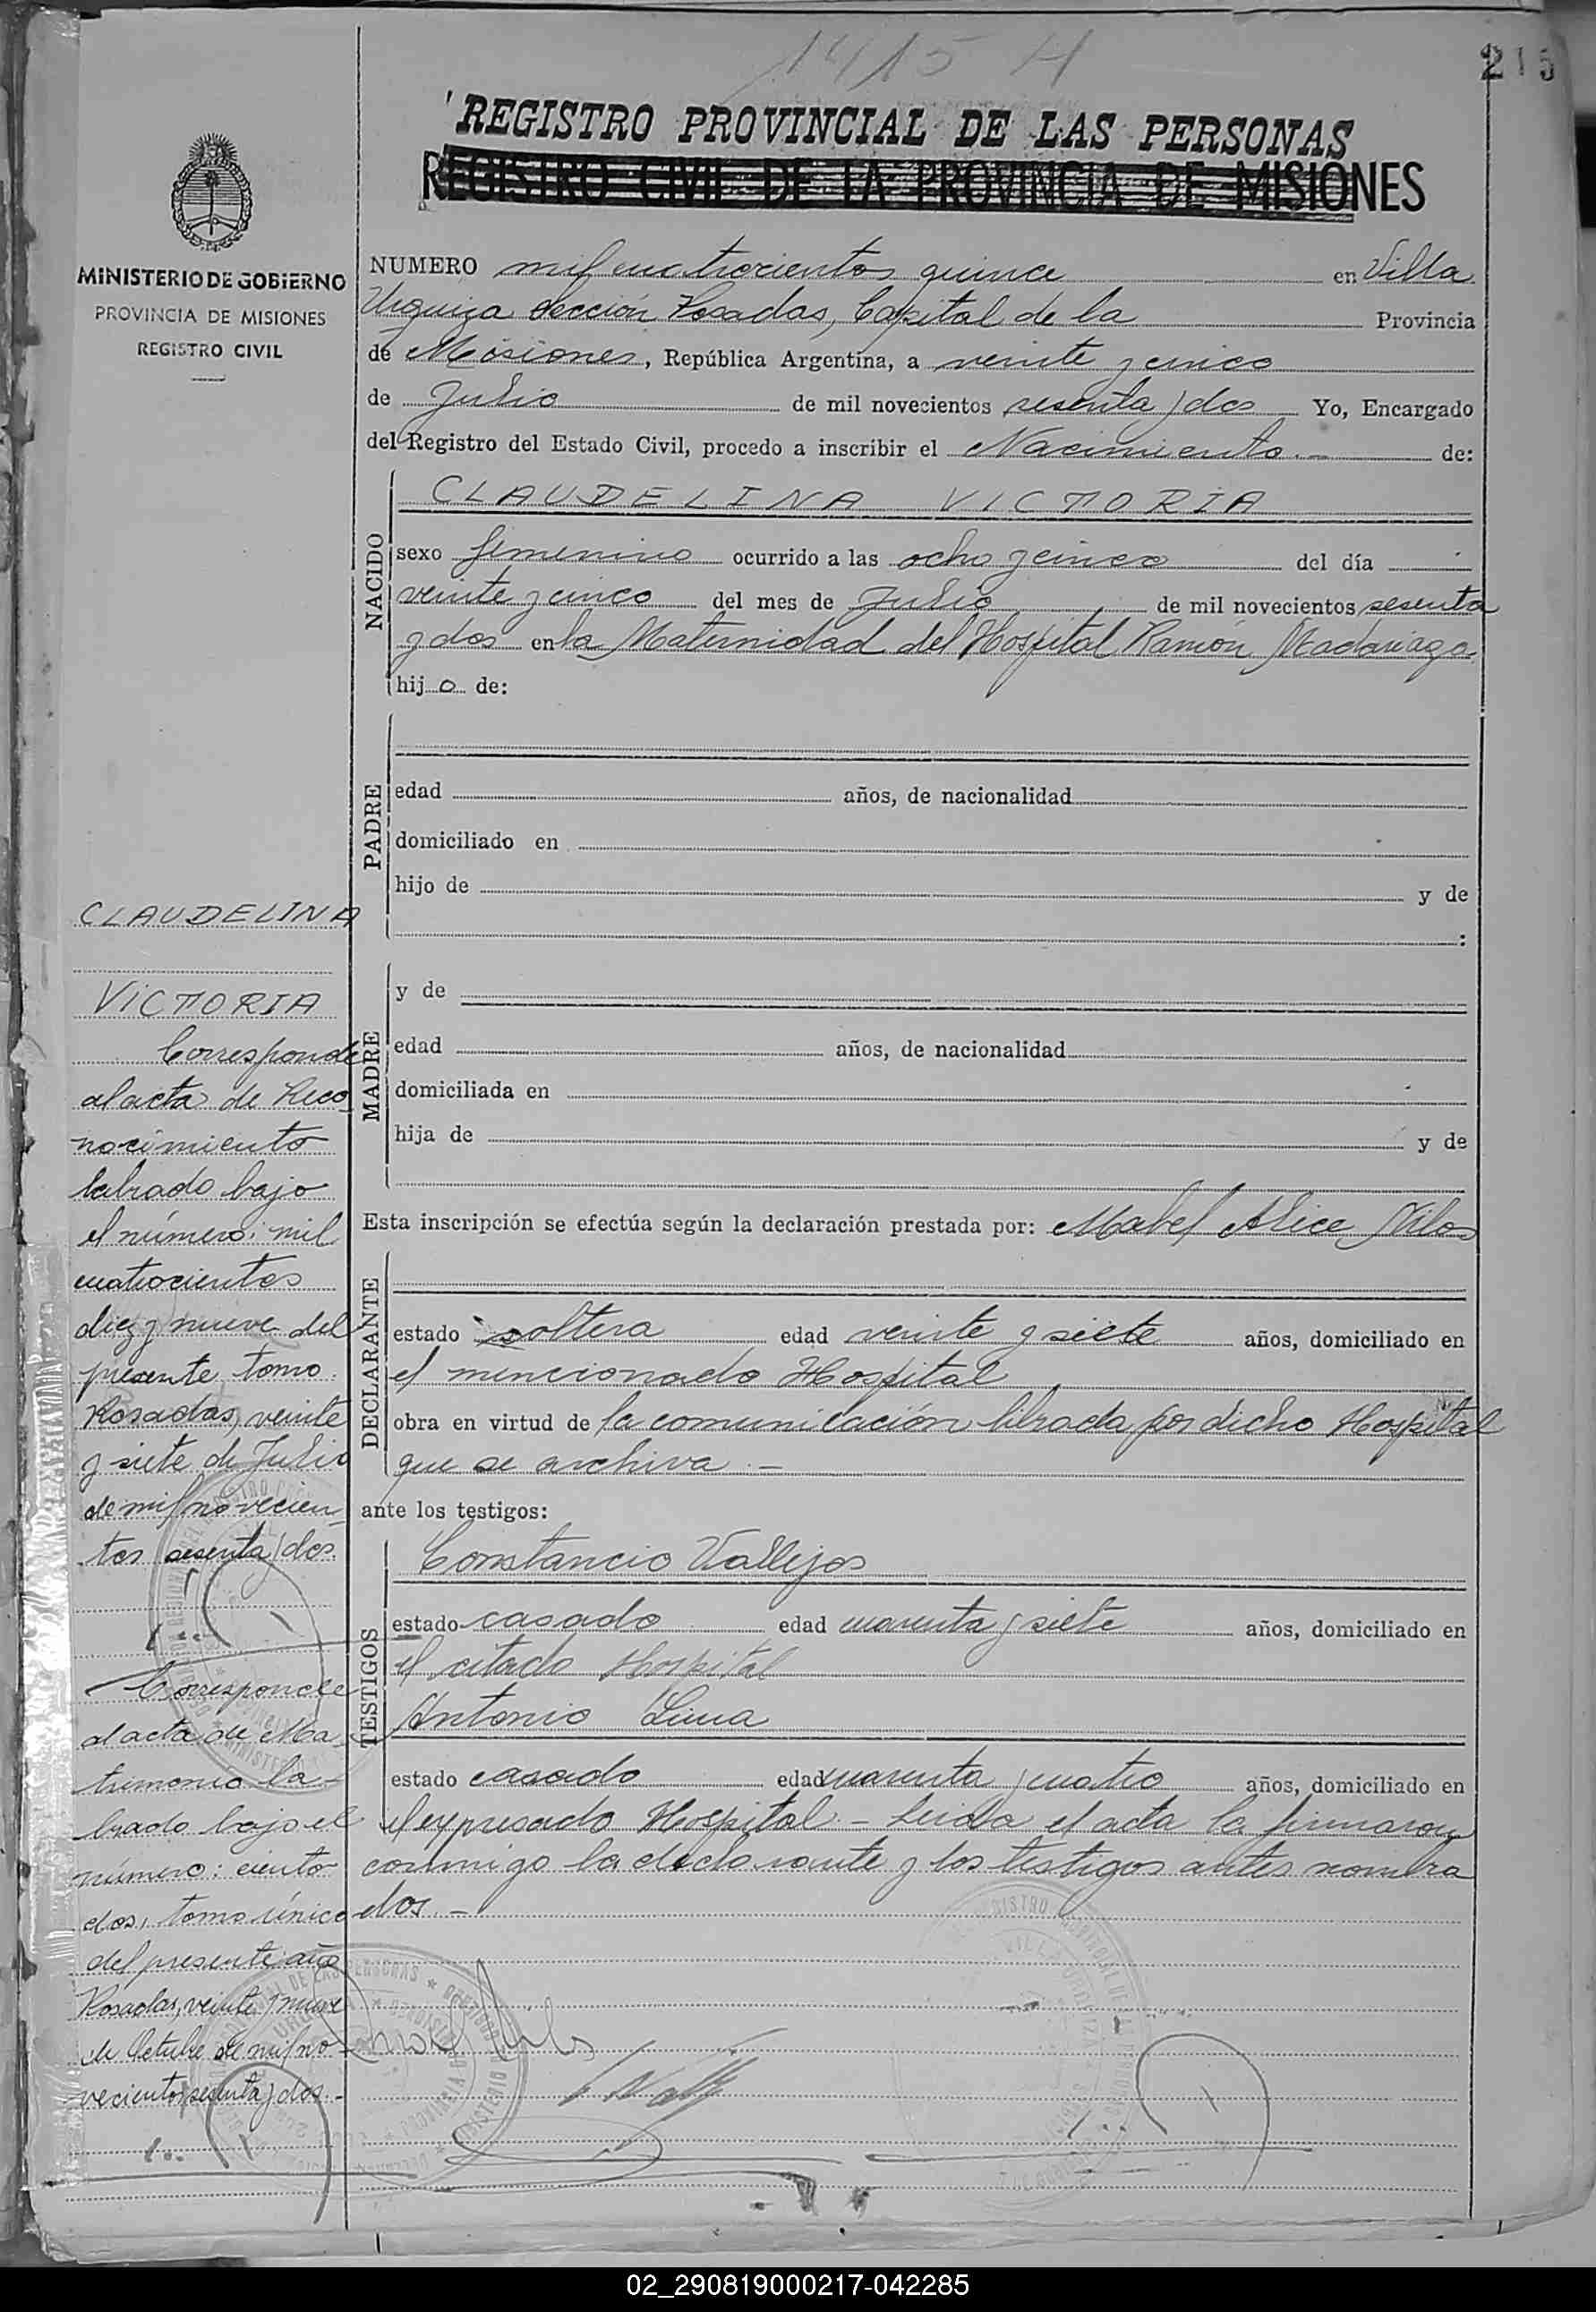 1415 H
215
REGISTRO PROVINCIAL DE LAS PERSONAS
REGISTRO CIVIL DE LA PROVINCIA DE MISIONES
MINISTERIO DE GOBIERNO
PROVINCIA DE MISIONES
REGISTRO CIVIL
NUMERO mil cuatrocientos quince en Villa
Urquiza Sección Posadas, Capital de la Provincia
de Misiones, República Argentina, a veinte y cinco
de Julio de mil novecientos sesenta y dos Yo, Encargado
del Registro del Estado Civil, procedo a inscribir el Nacimiento.- de:
NACIDO
CLAUDELINA VICTORIA
sexo femenino ocurrido a las ocho y cinco del día
veinte y cinco del mes de Julio de mil novecientos sesenta
y dos en la Maternidad del Hospital Ramón Madariaga
hij o de:
PADRE
edad años, de nacionalidad
domiciliado en
hijo de y de
:
MADRE
y de
edad años, de nacionalidad
domiciliada en
hija de y de
Esta inscripción se efectúa según la declaración prestada por: Mabel Alice Nilos
DECLARANTE
estado soltera edad veinte y siete años, domiciliado en
el mencionado Hospital
obra en virtud de la comunicación librada por dicho Hospital
que se archiva.-
ante los testigos:
TESTIGOS
Constancio Vallejos
estado casado edad cuarenta y siete años, domiciliado en
el citado Hospital
Antonio Luna
estado casado edad cuarenta y cuatro años, domiciliado en
el expresado Hospital.- Leida el acta la firmaron
conmigo la declarante y los testigos antes nombra
dos.-
CLAUDELINA
VICTORIA
Corresponde
al acta de Reco
nocimiento
labrado bajo
el número: mil
cuatrocientos
diez y nueve del
presente tomo.
Posadas, veinte
y siete de Julio
de mil novecien
tos sesenta y dos.
Corresponde
al acta de Ma
trimonio la-
brado bajo el
número: ciento
dos, tomo único
del presente año
Posadas, veinte y nueve
de Octubre de mil no
vecientos sesenta y dos.-
02_290819000217-042285